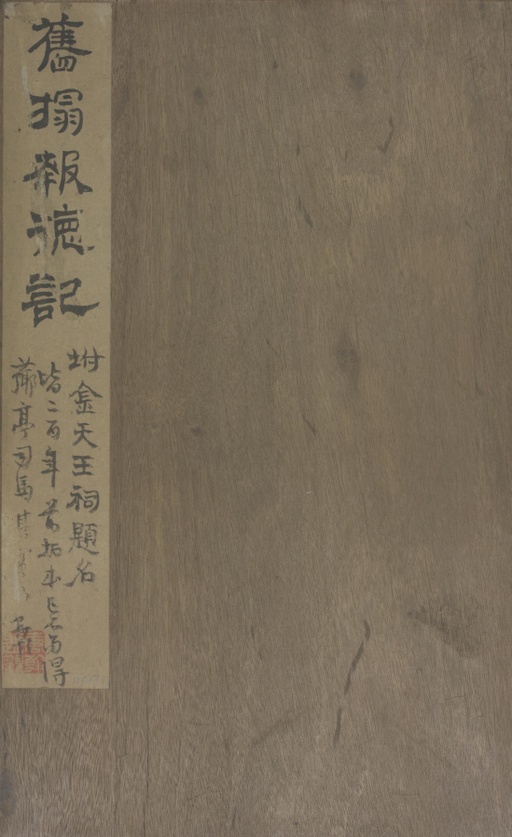 舊搨報德記
坿金天王祠題名
皆二百年前拓本已不易得
蘇亭司馬